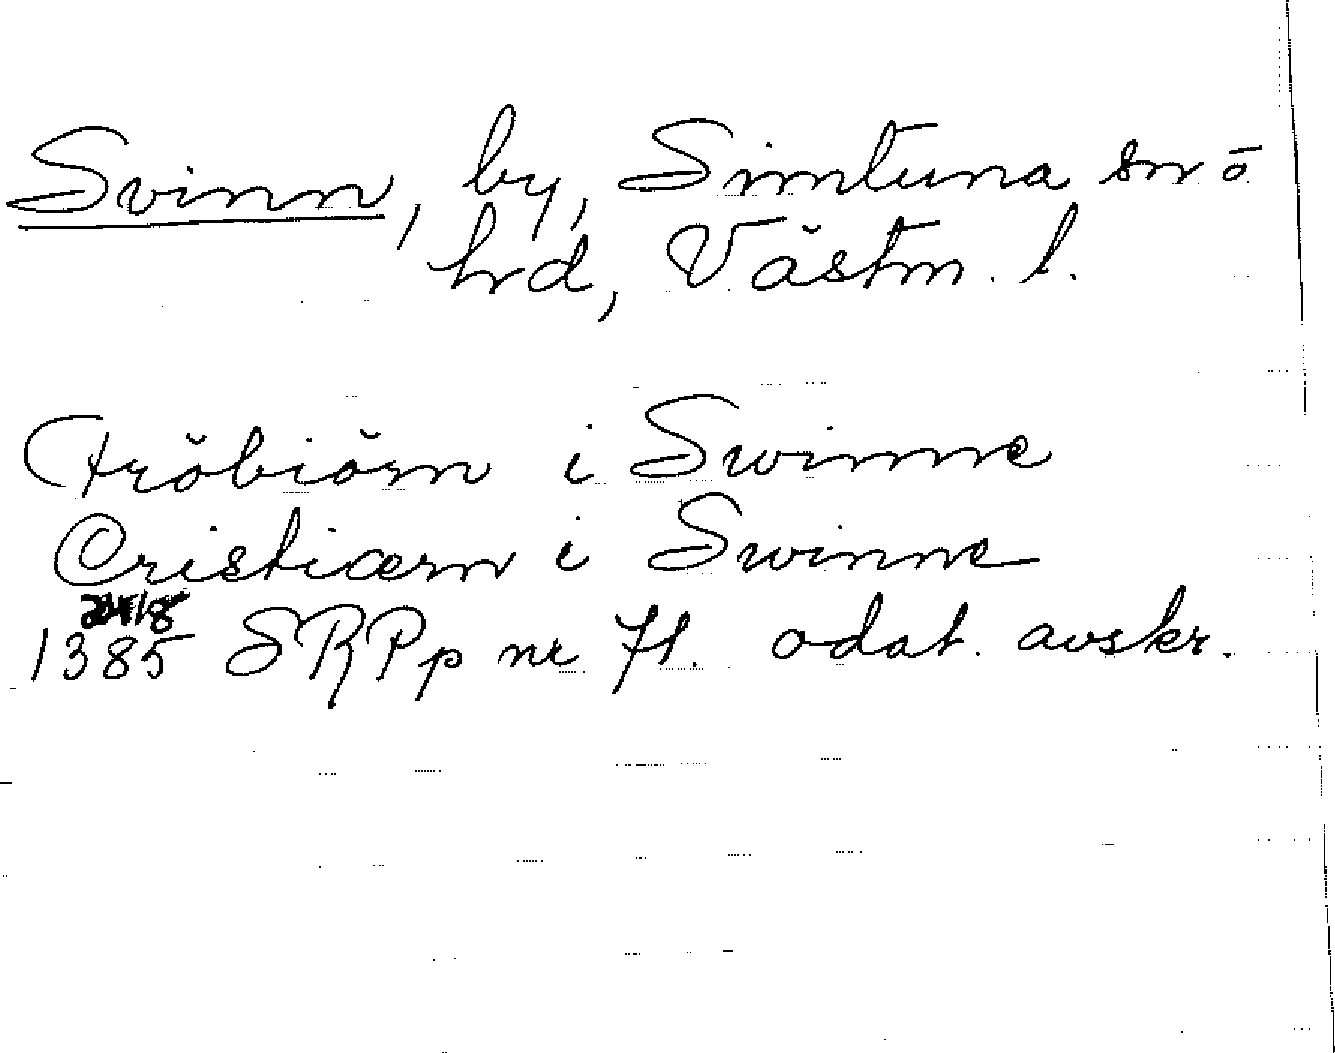 Svinn, by, Simtuna sn o
hrd, Västm. l.
Fröbiörn i Swinne
Cristiærn i Swinne
1385 SRPp nr 71. odat. avskr.